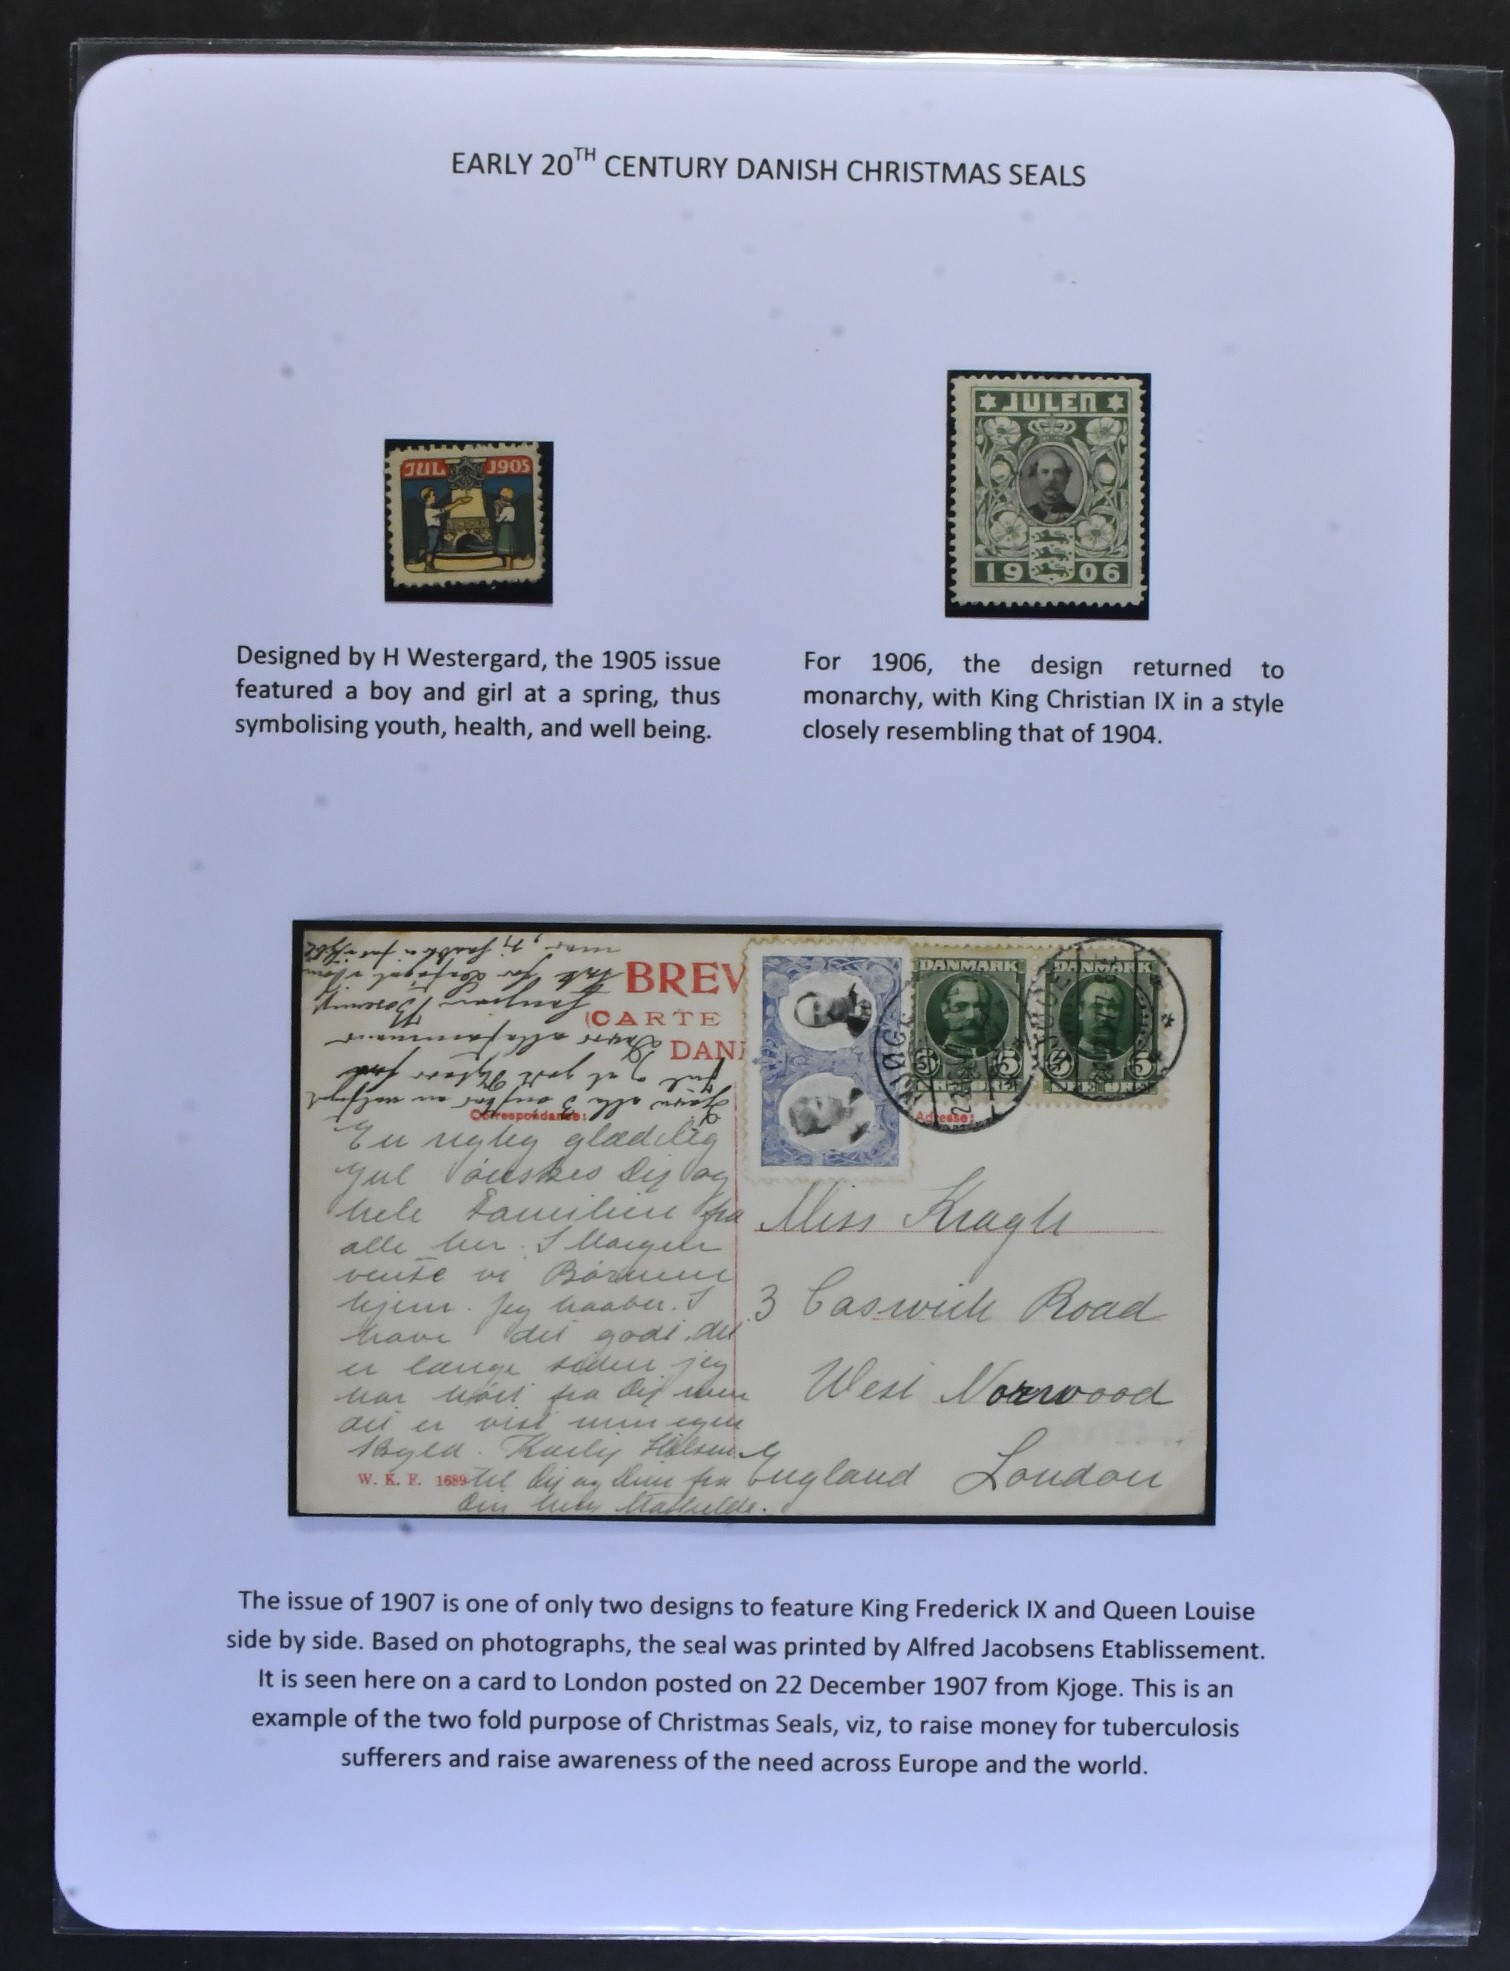 EARLY 20TH CENTURY DANISH CHRISTMAS SEALS
JUL 1905
JULEN
1906
Designed by H Westergard, the 1905 issue
featured a boy and girl at a spring, thus
symbolising youth, health, and well being.
For 1906, the design returned to
monarchy, with King Christian IX in a style
closely resembling that of 1904.
BREV
(CARTE
DAN
DANMARK
5 5
DANMARK
5 5
Correspondance:
Adresse:
En rigtig glædelig
Jul ønskes Dig og
hele Familien fra
alle her. I Morgen
vente vi Børnene
hjem. Jeg haaber I
have det godt, det
er længe siden jeg
har hørt fra Dig men
det er vist min egen
Skyld. Kærlig Hilsen
til Dig og Dine fra
Din hen Mathilde.
W. K. F. 1689
Miss Kragh
3 Caswick Road
West Norwood
England London
The issue of 1907 is one of only two designs to feature King Frederick IX and Queen Louise
side by side. Based on photographs, the seal was printed by Alfred Jacobsens Etablissement.
It is seen here on a card to London posted on 22 December 1907 from Kjoge. This is an
example of the two fold purpose of Christmas Seals, viz, to raise money for tuberculosis
sufferers and raise awareness of the need across Europe and the world.